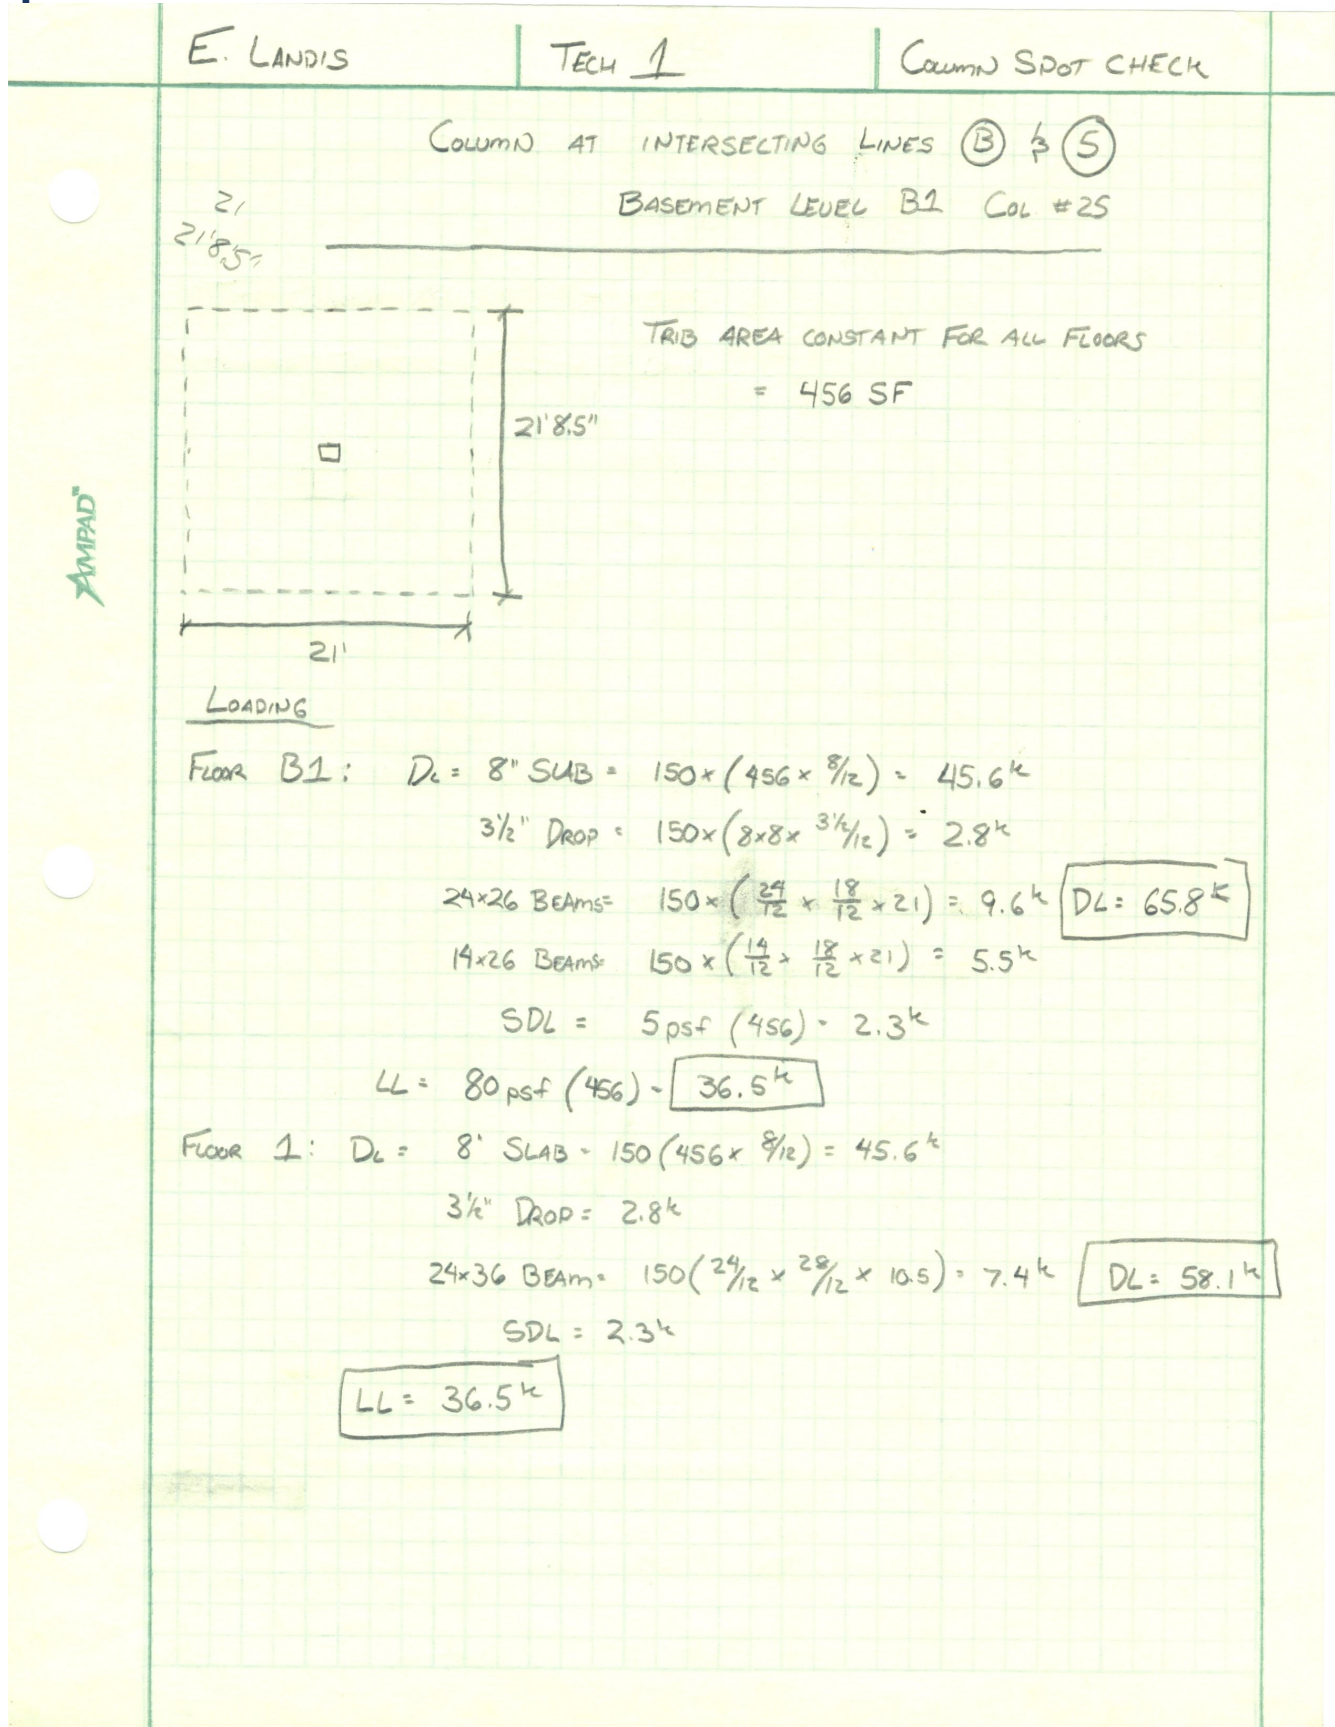 E. LANDIS TECH 1 COLUMN SPOT CHECK
COLUMN AT INTERSECTING LINES B & 5
BASEMENT LEVEL B1 COL #25
21
21'8.5"
TRIB AREA CONSTANT FOR ALL FLOORS
= 456 SF
21'8.5"
AMPAD™
21'
LOADING
FLOOR B1: DL = 8" SLAB = 150×(456 × 8/12) = 45.6k
3½" DROP = 150×(8×8× 3½/12) = 2.8k
24×26 BEAMS= 150×(24/12 × 18/12 ×21) = 9.6k DL= 65.8k
14×26 BEAMS= 150×(14/12 × 18/12 ×21) = 5.5k
SDL = 5psf (456) = 2.3k
LL = 80psf (456) = 36.5k
FLOOR 1: DL = 8" SLAB = 150(456× 8/12) = 45.6k
3½" DROP = 2.8k
24×36 BEAM= 150(24/12 × 28/12 × 10.5) = 7.4k DL= 58.1k
SDL = 2.3k
LL= 36.5k